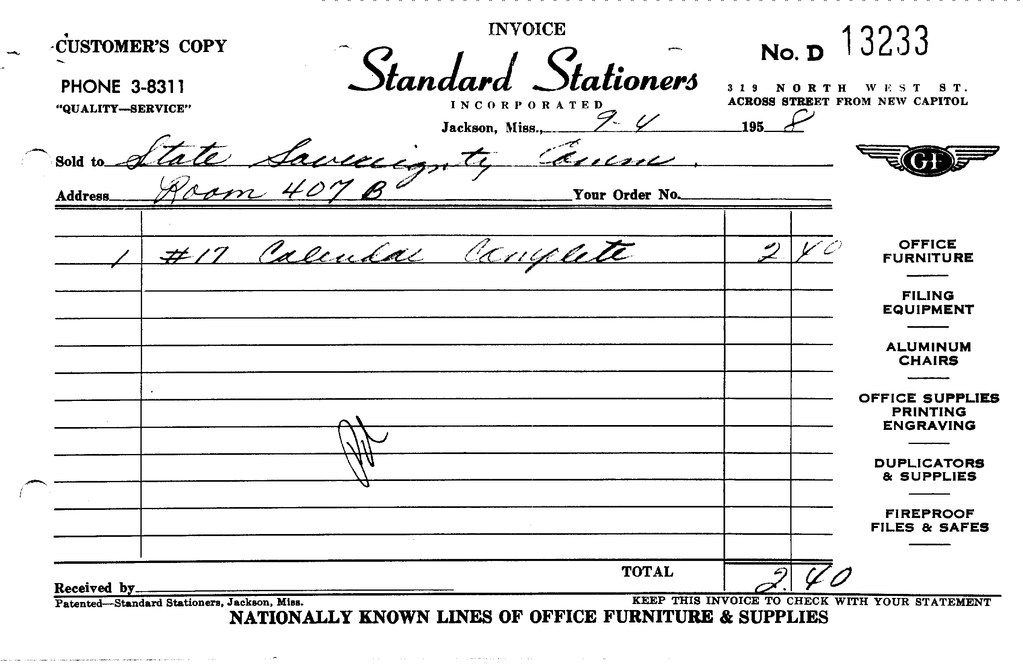 INVOICE
CUSTOMER'S COPY
No. D 13233
Standard Stationers
PHONE 3-8311
319 NORTH WEST ST.
"QUALITY—SERVICE"
INCORPORATED
ACROSS STREET FROM NEW CAPITOL
Jackson, Miss., 9-4 1958
Sold to State Sovereignty Comm.
GF
Address Room 407 B Your Order No.
1 #17 Calendar Complete 2 40
OFFICE
FURNITURE
FILING
EQUIPMENT
ALUMINUM
CHAIRS
OFFICE SUPPLIES
PRINTING
ENGRAVING
DUPLICATORS
& SUPPLIES
FIREPROOF
FILES & SAFES
TOTAL 2.40
Received by
Patented—Standard Stationers, Jackson, Miss.
KEEP THIS INVOICE TO CHECK WITH YOUR STATEMENT
NATIONALLY KNOWN LINES OF OFFICE FURNITURE & SUPPLIES